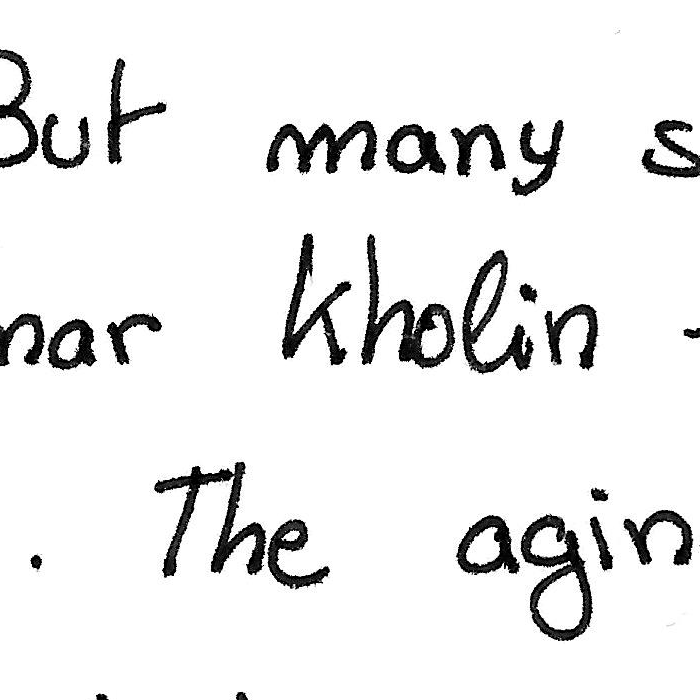 But many s
nar Kholin -
. The agin